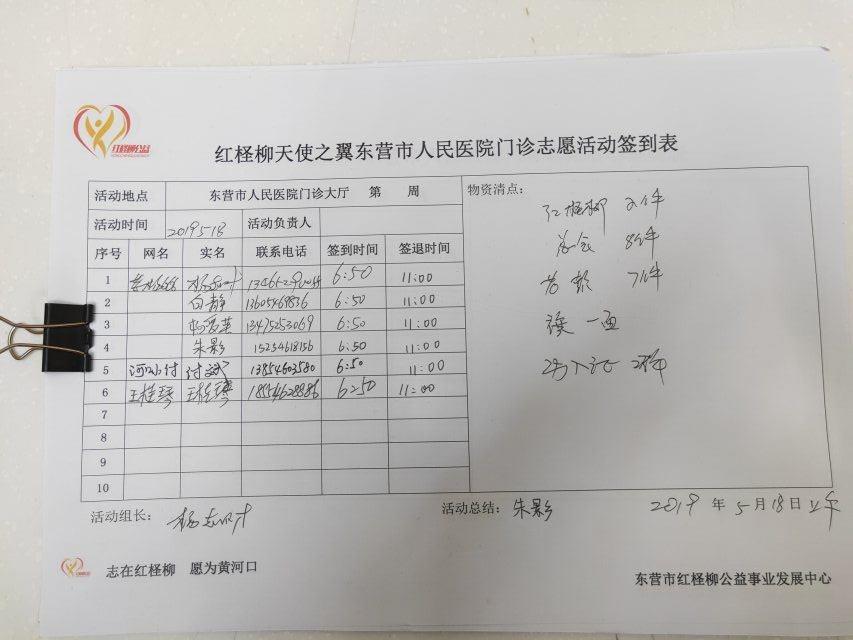 红柽柳公益
红柽柳天使之翼东营市人民医院门诊志愿活动签到表
活动地点 东营市人民医院门诊大厅 第 周 物资清点：
红柽柳 2件
活动时间 2019518 活动负责人
8件
序号 网名 实名 联系电话 签到时间 签退时间
7件
1 6:50 11:00
2 白静 13605469836 6:50 11:00
一面
3 13475253069 6:50 11:00
4 朱影 15254618156 6:50 11:00
5 河小付 付 13854603580 6:50 11:00
6 王桂琴 王桂琴 18554628886 6:50 11:00
7
8
9
10
活动组长： 杨志 活动总结： 朱影 2019 年 5 月 18 日 上午
志在红柽柳 愿为黄河口
东营市红柽柳公益事业发展中心